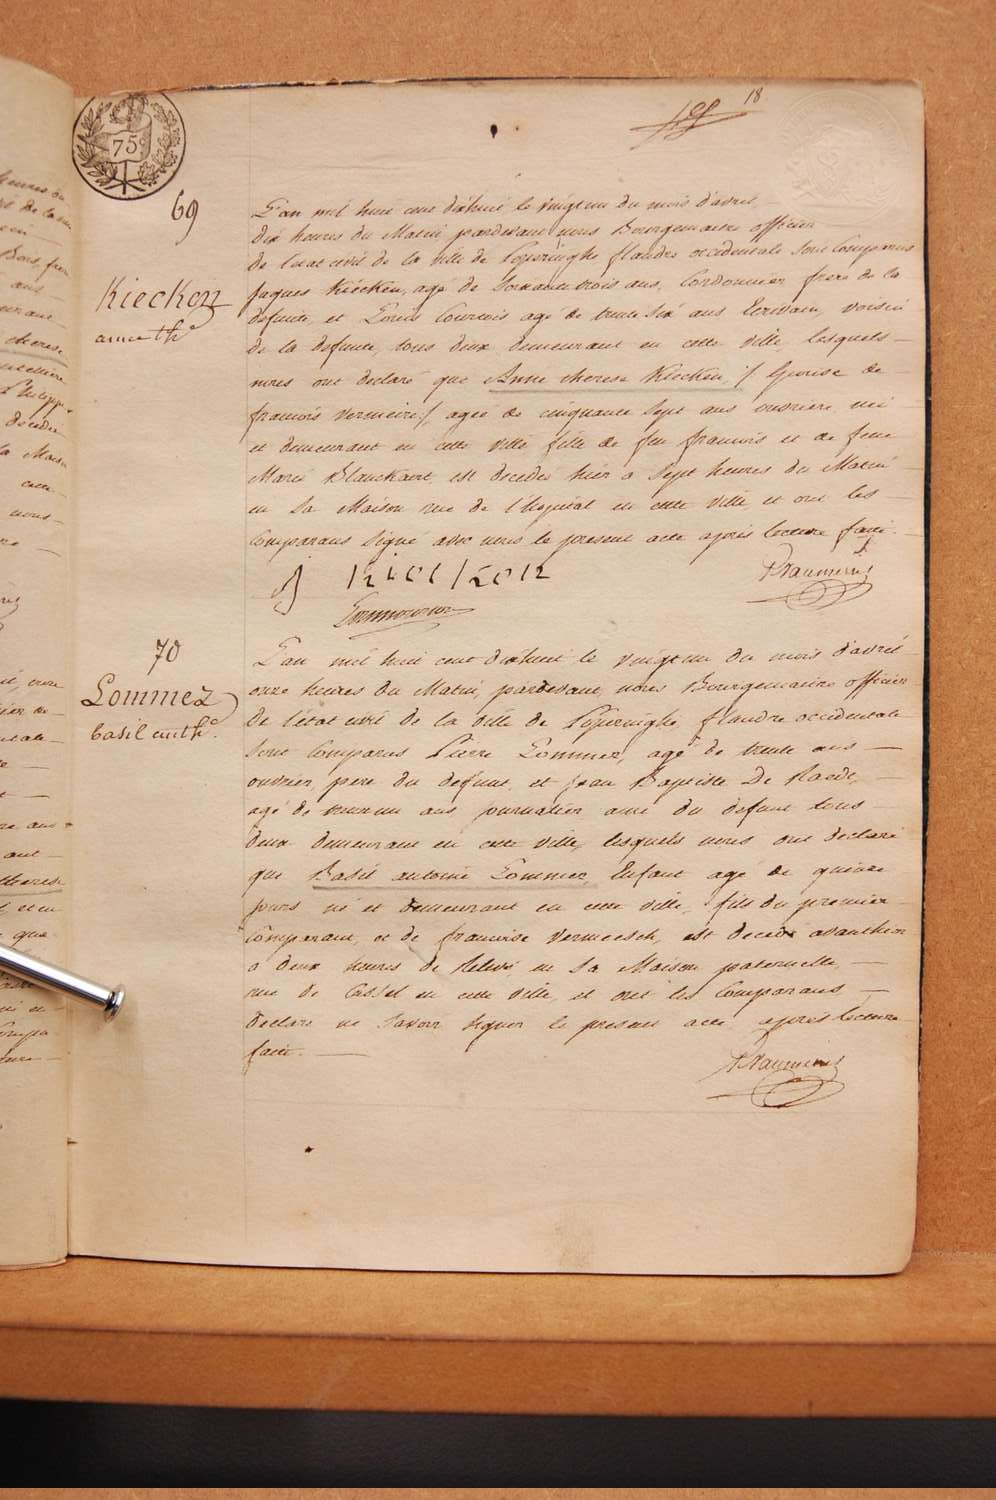 18
75
69
L'an mil huit cent dixhuit le vingtun du mois d'avril
dix heures du Matin pardevant nous Bourgemaitre officier
de l'etat civil de la ville de Poperinghe flandre occidentale sont Comparus
Jaques Kiecken, agé de soixantetrois ans, Cordonnier frere de la
Kiecken
defunte, et Louis Courtois agé de trente six ans Ecrivain, voisin
anne th.e
de la defunte, tous deux demeurant en cette ville, lesquels
nous ont declaré que Anne therese Kiecken, /Epouse de
francois Vermeire/, agée de cinquante sept ans ouvriere, née
et demeurant en cette ville fille de feu francois et de feue
Marie Blanckaert, est decedée hier a sept heures du Matin
en sa Maison rue de l'hopital en cette ville, et ont les
Comparans signé avec nous le present acte après lecture faite.
Kiecken
70
L'an mil huit cent dixhuit le vingtun du mois d'avril
Lommez
onze heures du Matin, pardevant, nous Bourgemaitre officier
basil ant.he
de l'état civil de la ville de Poperinghe flandre occidentale
sont Comparus Pierre Lommez, agé de trente ans
ouvrier, pere du defunt, et Jean Baptiste De Raedt,
agé de ans, journalier ami du defunt tous
deux demeurant en cette ville, lesquels nous ont declaré
que Basil antoine Lommez, Enfant agé de quinze
jours né et demeurant en cette ville, fils du premier
Comparant, et de francoise Vermeesch, est decedé avanthier
a deux heures de relevé en sa Maison paternelle,
rue de Cassel en cette ville, et ont les Comparans
declaré ne savoir signer le present acte après lecture
faite.